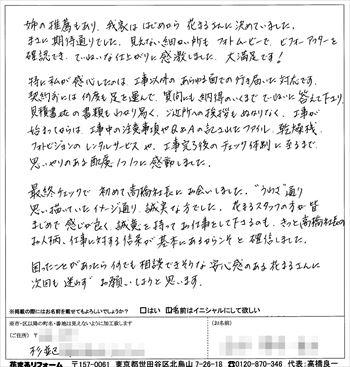 姉の推薦もあり、我家は はじめから 花まるさんに決めていました。
まさに期待通りでした。見えない細かい所も フォトムービーで、ビフォーアフターを
確認でき、ていねいな仕上がりに感激しました。大満足です!
特に私が感心したのは、工事以外のあらゆる面での行き届いた対応です。
契約前には何度も足を運んで、質問にも納得のいくまで ていねいに答えて下さり、
見積書などの書類もわかり易く、ご近所への挨拶もぬかりなく、工事が
始まってからは、工事中の注意事項やQ&Aの記されたファイル、乾燥機、
フォトビジョンのレンタルサービスや、工事完了後のチェック体制に至るまで、
思いやりのある配慮1つ1つに感動しました。
最終チェックで 初めて高橋社長にお会いしました。"うわさ"通り
思い描いていたイメージ通り、誠実な方でした。花まるスタッフの方が皆
まじめで感じが良く、誠意を持ってお仕事をして下さるのも、きっと高橋社長の
お人柄、仕事に対する信条が基本にあるからだと確信しました。
困ったことがあったら何でも相談できそうな安心感のある花まるさんに
次回も迷わずお願いしようと思います。
※掲載の際にはお名前を載せてもよろしいでしょうか? □はい ☑名前はイニシャルにして欲しい
※市・区以降の町名・番地は見えないように加工致します
(ご住所) 〒
(お名前)
杉並区
花まるリフォーム 〒157-0061 東京都世田谷区北烏山7-26-18 0120-870-346 代表:高橋良一